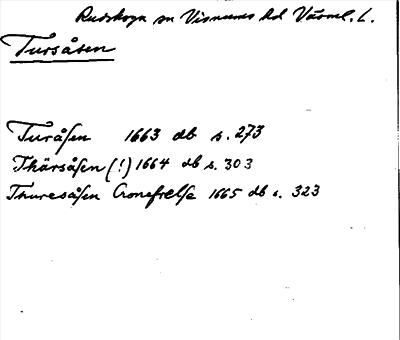 Rudskoga sn Visnums hd Värml. L.
Tursåsen
Turåsen 1663 db s. 273
Thärsåsen (!) 1664 db s. 303
Thuresåsen Cronefrelse 1665 db s. 323